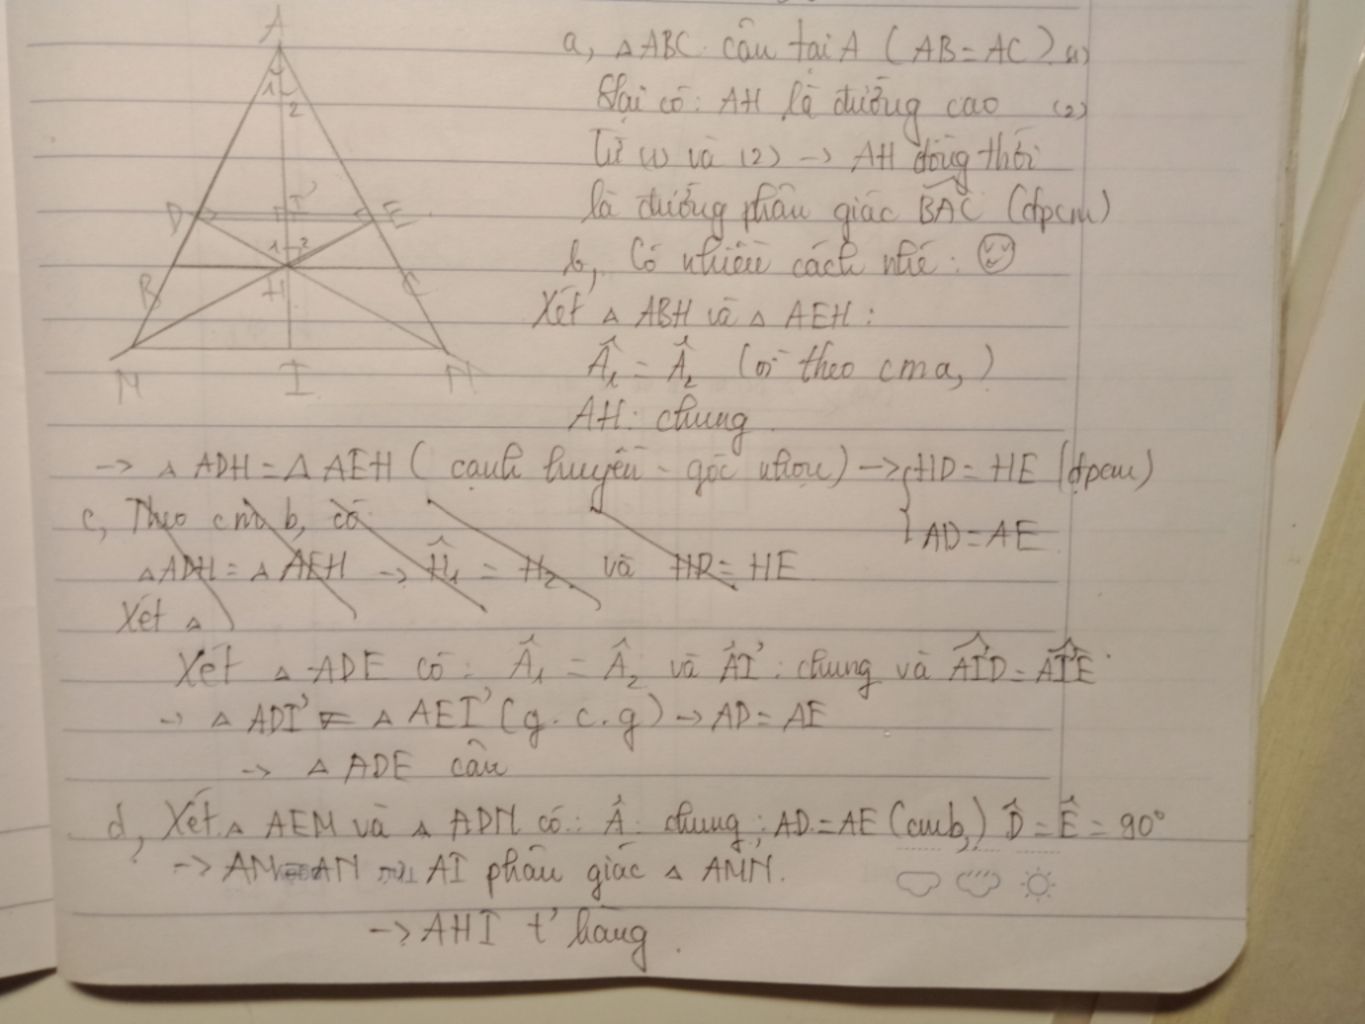 A
1
2
D
I'
E
1 2
B
H
C
M
I
N
a, △ABC cân tại A (AB = AC) (1)
Lại có: AH là đường cao (2)
Từ (1) và (2) → AH đồng thời
là đường phân giác BAC (đpcm)
b, Có nhiều cách nhé:
Xét △ ABH và △ AEH:
Â1 = Â2 (vì theo cma,)
AH: chung
→ △ ADH = △ AEH ( cạnh huyền - góc nhọn) → { HD = HE (đpcm)
AD = AE
c, Theo cm b, có
△ADH = △ AEH → Ĥ1 = H2 và HD = HE
Xét △
Xét △ ADE có: Â1 = Â2 và AI' : chung và AI'D = AI'E
→ △ ADI' = △ AEI' (g.c.g) → AD = AE
→ △ ADE cân
d, Xét △ AEM và △ ADN có: Â chung; AD = AE (cmb,) D̂ = Ê = 90°
→ AM = AN AI phân giác △ AMN.
→ AHI t' hàng.